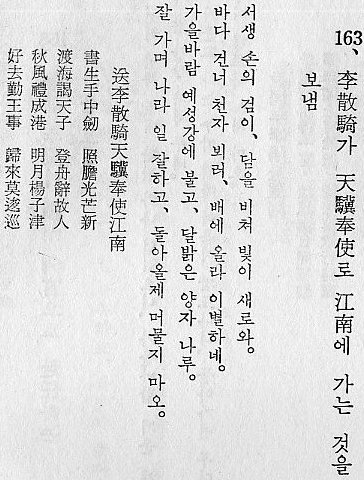 163、 李散騎가 天驥奉使로 江南에 가는 것을
보냄
서생 손의 검이, 담을 비쳐 빛이 새로와。
바다 건너 천자 뵈러, 배에 올라 이별하네。
가을바람 예성강에 불고, 달밝은 양자 나루。
잘 가며 나라 일 잘하고, 돌아올제 머물지 마오。
送李散騎天驥奉使江南
書生手中劒 照膽光芒新
渡海謁天子 登舟辭故人
秋風禮成港 明月楊子津
好去勤王事 歸來莫逡巡